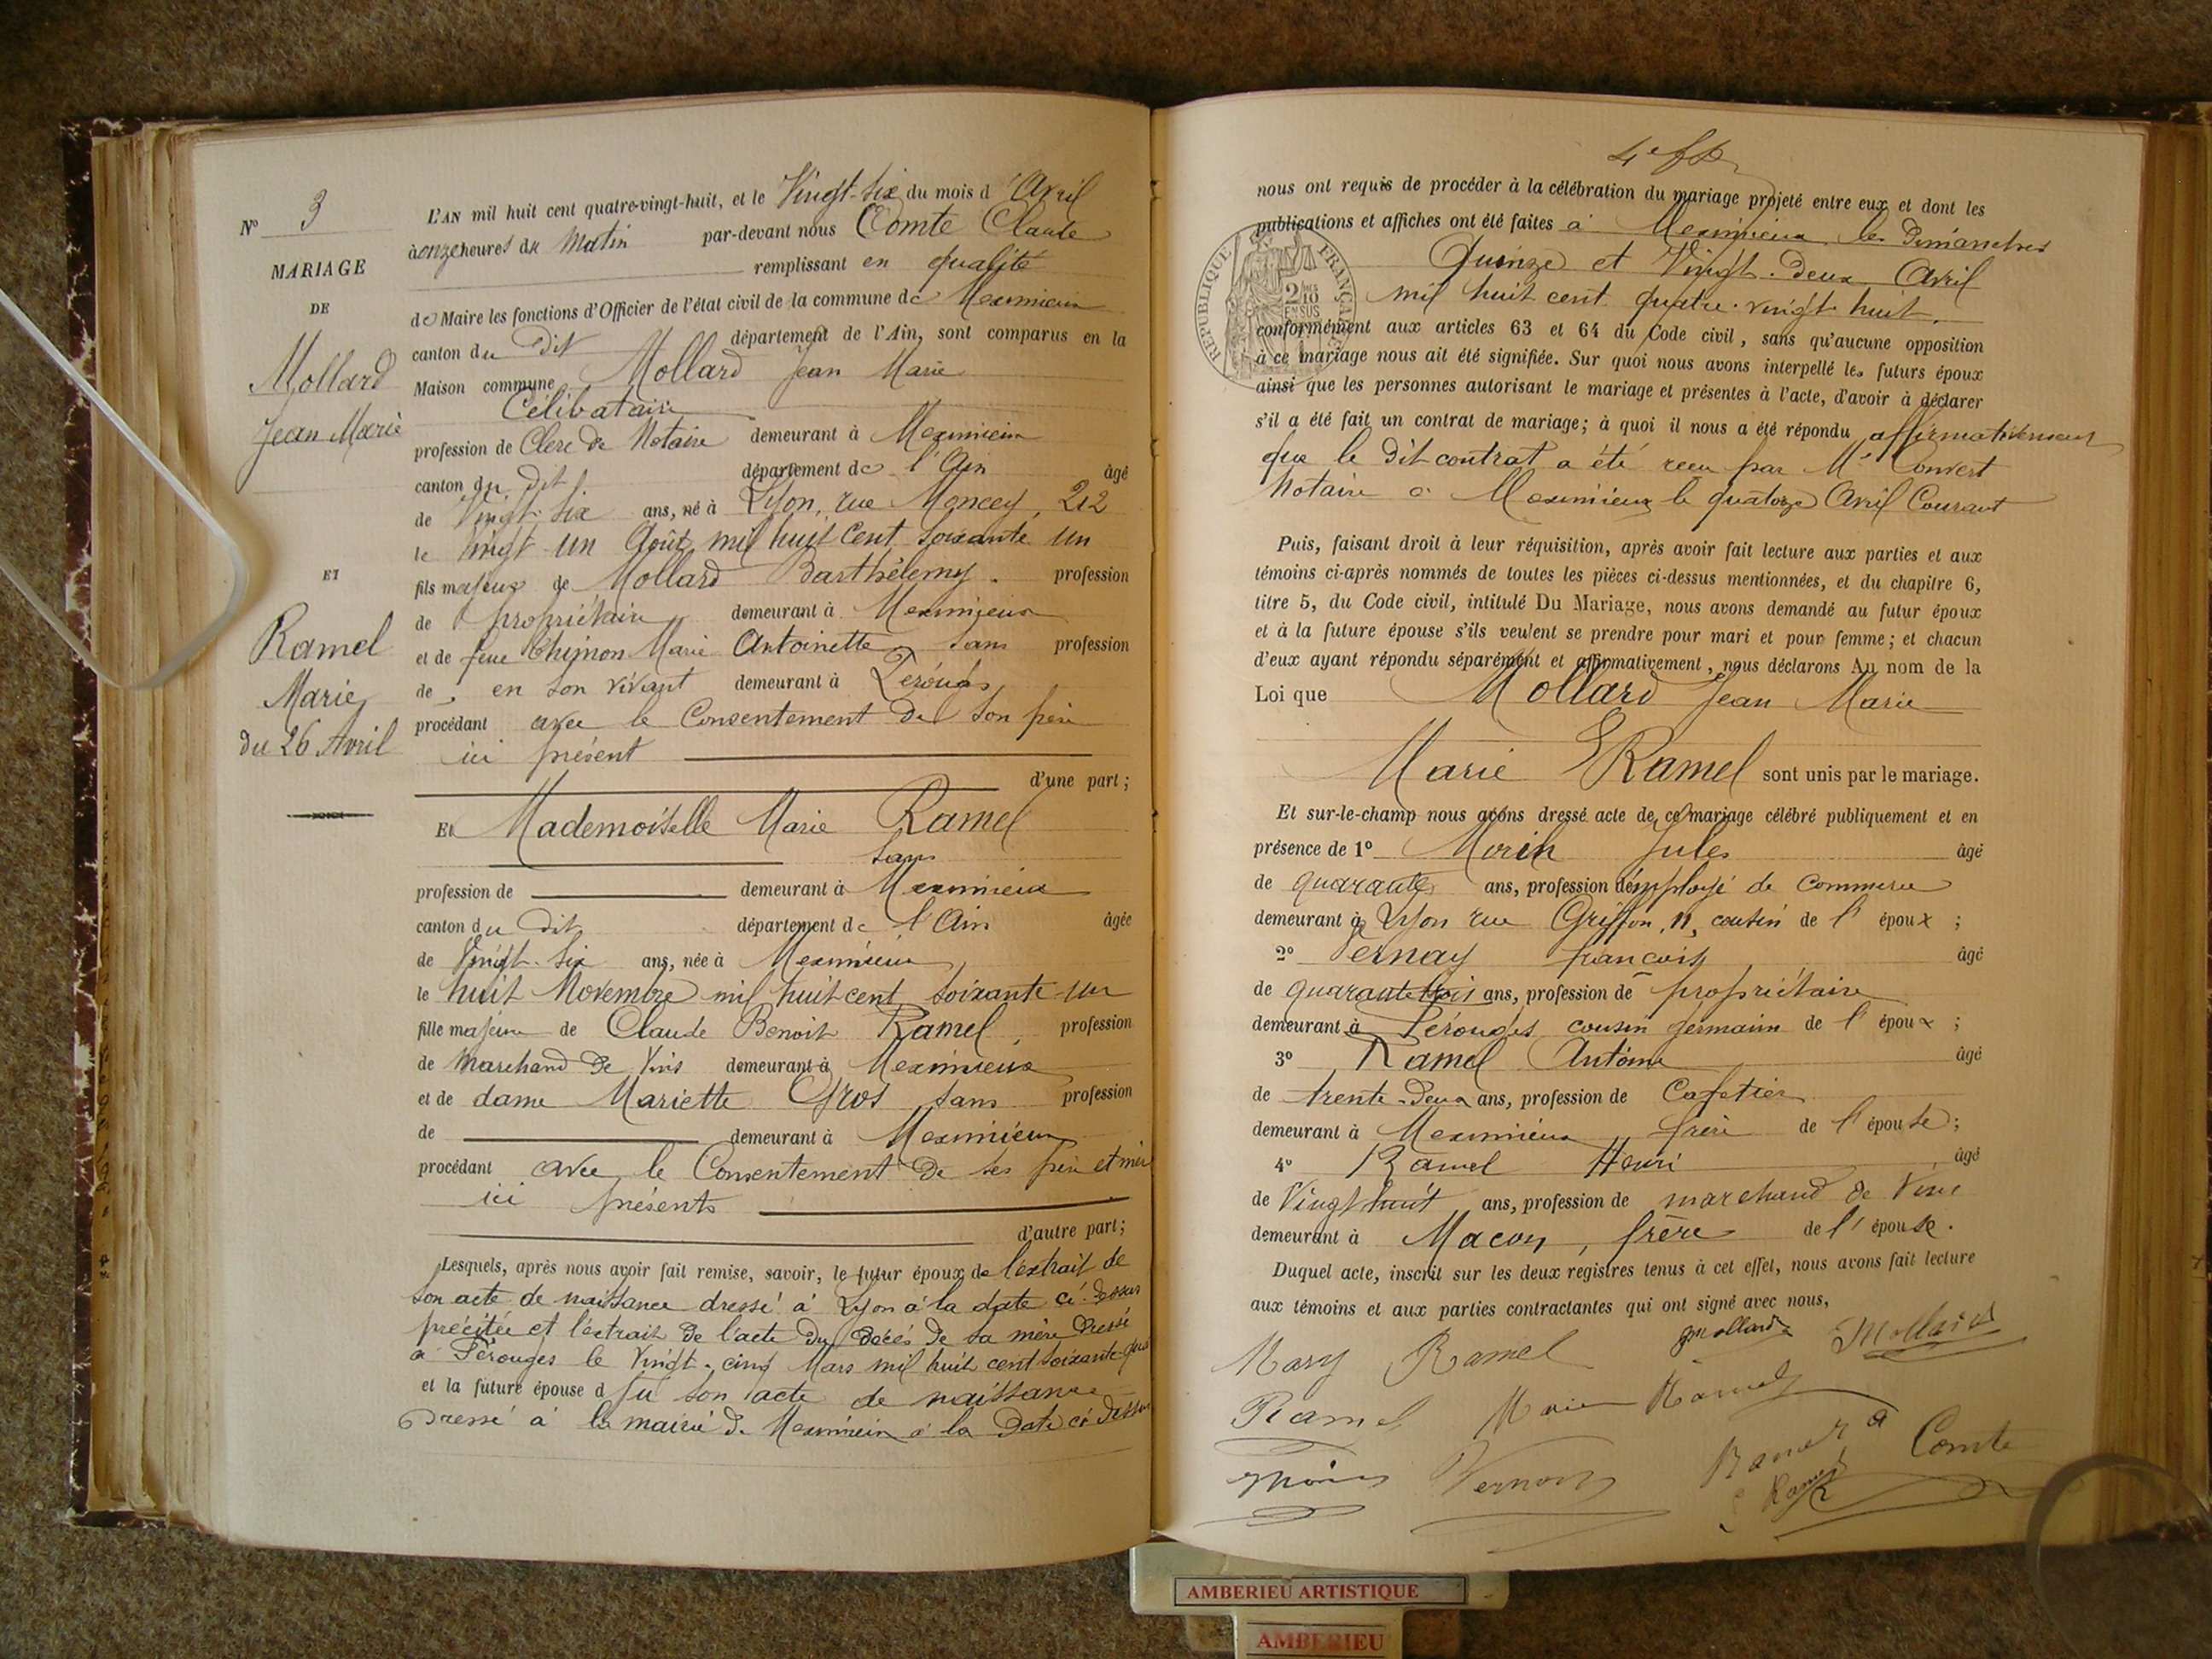 N° 3
MARIAGE
DE
Mollard
Jean Marie
ET
Ramel
Marie
du 26 Avril
L'AN mil huit cent quatre-vingt-huit, et le Vingt-six du mois d'Avril
à onze heures du Matin par-devant nous Comte Claude
remplissant en qualité
de Maire les fonctions d'Officier de l'état civil de la commune de Meximieux
canton du dit département de l'Ain, sont comparus en la
Maison commune Mollard Jean Marie
Célibataire
profession de Clerc de Notaire demeurant à Meximieux
canton du dit département de l'Ain âgé
de Vingt-six ans, né à Lyon, rue Moncey, 212
le Vingt un Août mil huit cent soixante un
fils majeur de Mollard Barthélemy. profession
de propriétaire demeurant à Meximieux
et de feue Chinon Marie Antoinette sans profession
de, en son vivant demeurant à Pérouges
procédant avec le Consentement de son père
ici présent
d'une part;
Et Mademoiselle Marie Ramel
sans
profession de demeurant à Meximieux
canton du dit département de l'Ain âgée
de Vingt-six ans, née à Meximieux,
le huit Novembre mil huit cent soixante-un
fille majeure de Claude Benoit Ramel, profession
de Marchand de Vins demeurant à Meximieux
et de dame Mariette Gros sans profession
de demeurant à Meximieux
procédant avec le Consentement de ses père et mère
ici présents
d'autre part;
Lesquels, après nous avoir fait remise, savoir, le futur époux de l'extrait de
son acte de naissance dressé à Lyon à la date ci-dessus
précitée et l'extrait de l'acte du décès de sa mère dressé
à Pérouges le Vingt-cinq Mars mil huit cent soixante
et la future épouse d son acte de naissance
dressé à la mairie de Meximieux à la date ci dessus
4e
nous ont requis de procéder à la célébration du mariage projeté entre eux et dont les
publications et affiches ont été faites à Meximieux les Dimanches
Quinze et Vingt-deux Avril
mil huit cent quatre-vingt huit,
RÉPUBLIQUE FRANÇAISE
2/10 EN SUS
conformément aux articles 63 et 64 du Code civil, sans qu'aucune opposition
à ce mariage nous ait été signifiée. Sur quoi nous avons interpellé les futurs époux
ainsi que les personnes autorisant le mariage et présentes à l'acte, d'avoir à déclarer
s'il a été fait un contrat de mariage; à quoi il nous a été répondu affirmativement
que le dit contrat a été reçu par Me Convert
Notaire à Meximieux le quatorze Avril Courant
Puis, faisant droit à leur réquisition, après avoir fait lecture aux parties et aux
témoins ci-après nommés de toutes les pièces ci-dessus mentionnées, et du chapitre 6,
titre 5, du Code civil, intitulé Du Mariage, nous avons demandé au futur époux
et à la future épouse s'ils veulent se prendre pour mari et pour femme; et chacun
d'eux ayant répondu séparément et affirmativement, nous déclarons Au nom de la
Loi que Mollard Jean Marie
Marie Ramel sont unis par le mariage.
Et sur-le-champ nous avons dressé acte de ce mariage célébré publiquement et en
présence de 1° Morin Jules âgé
de quarante ans, profession d'employé de commerce
demeurant à Lyon rue Griffon, 11, cousin de l'époux;
2° Vernay François âgé
de quarante trois ans, profession de propriétaire
demeurant à Pérouges cousin germain de l'époux;
3° Ramel Antoine âgé
de trente-deux ans, profession de Cafetier
demeurant à Meximieux, frère de l'épouse;
4° Ramel Henri âgé
de Vingt huit ans, profession de marchand de Vins
demeurant à Macon, frère de l'épouse.
Duquel acte, inscrit sur les deux registres tenus à cet effet, nous avons fait lecture
aux témoins et aux parties contractantes qui ont signé avec nous,
Mary Ramel Mollard Mollard
Ramel Marie Ramel
Morin Vernay Ramel a Comte
Ramel
AMBERIEU ARTISTIQUE
AMBERIEU